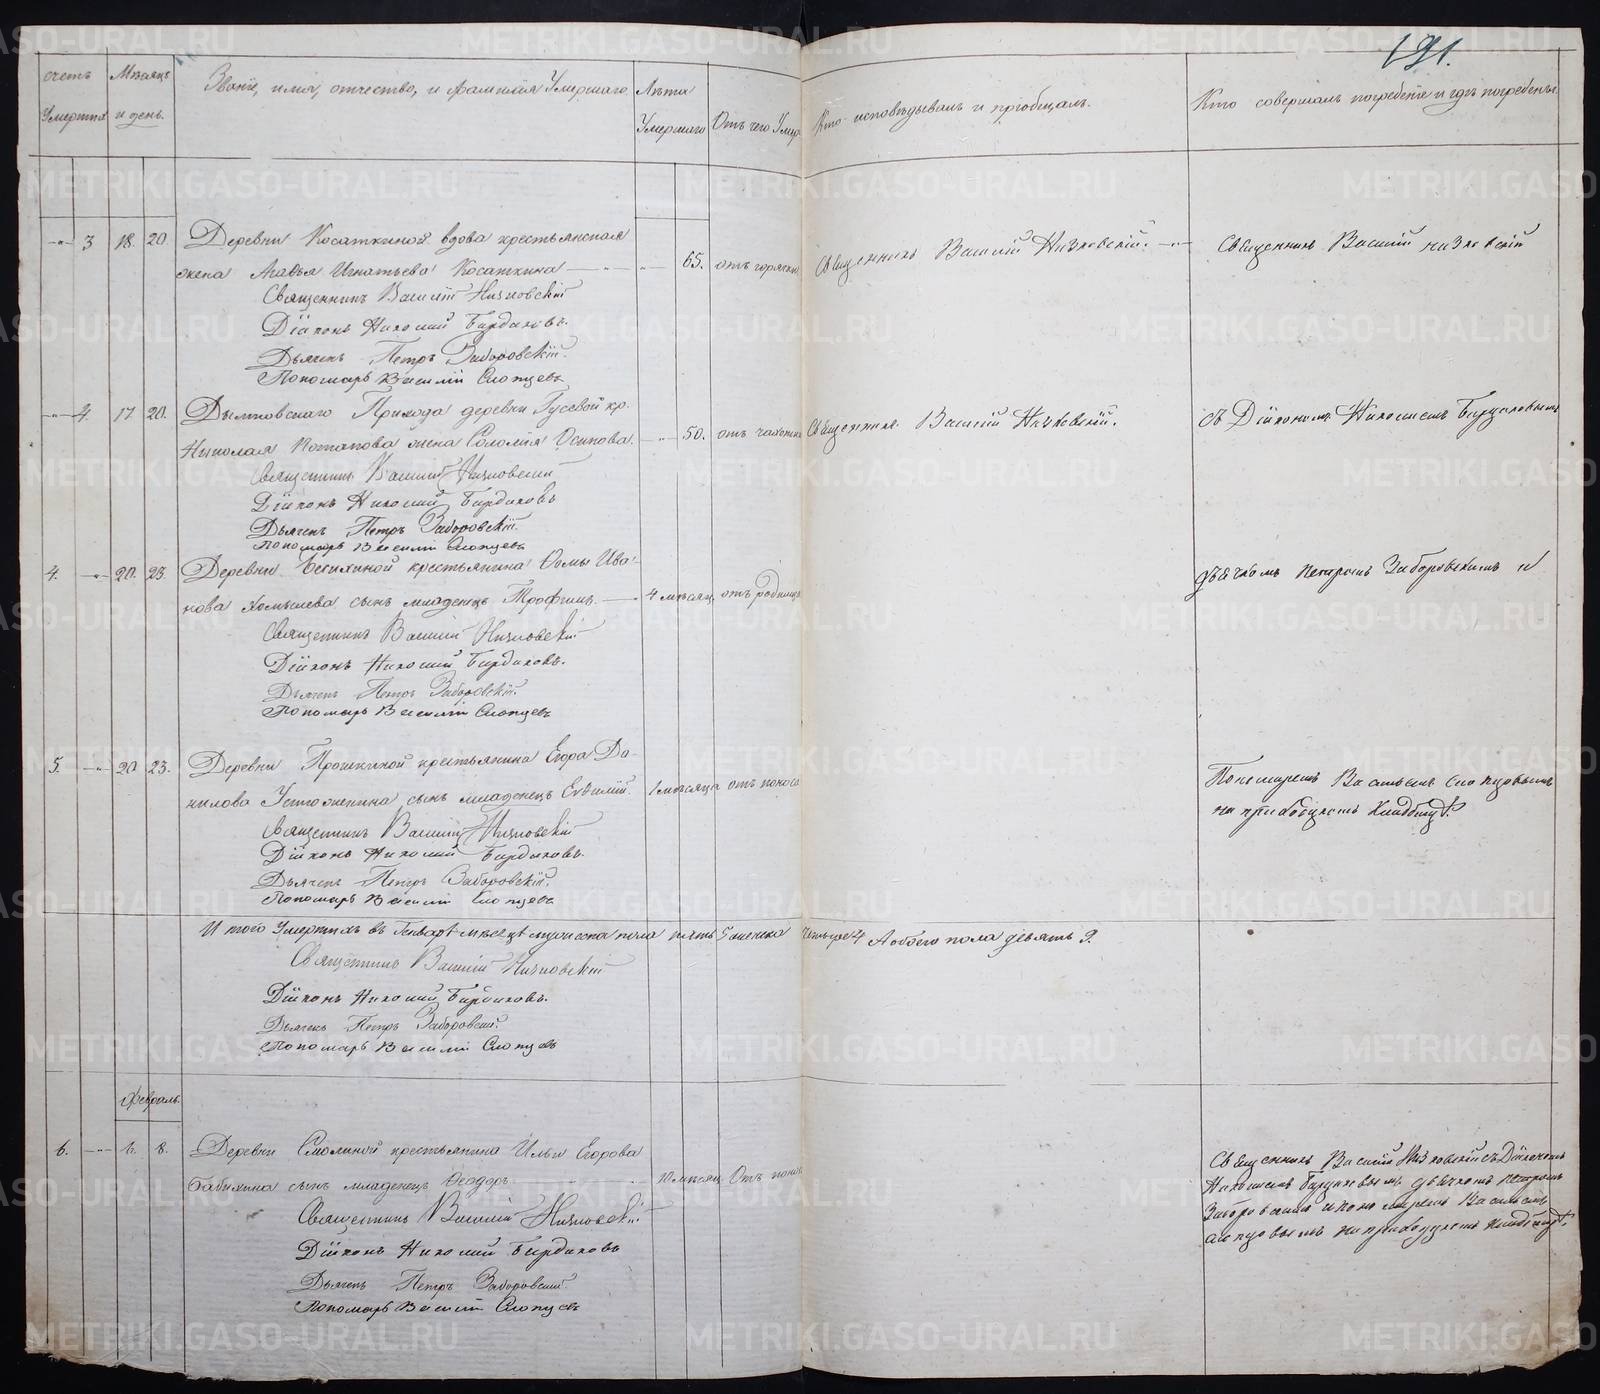 191.
счетъ Умершихъ
Мѣсяцъ и день.
Званіе, имя, отчество, и фамилія Умершаго.
Лѣта Умершаго
Отъ чего Умеръ
Кто исповѣдывалъ и пріобщалъ.
Кто совершалъ погребеніе и гдѣ погребены.
3 18. 20. Деревни Косаткиной вдова крестьянская
жена Агафья Игнатьева Косаткина 65. отъ горячки Священникъ Василій Низковскій. Священникъ Василій Низковскій
Священникъ Василій Низковскій
Діаконъ Николай Бирдюковъ.
Дьячекъ Петръ Заборовскій.
Пономарь Василій Слопцевъ
4. 17 20. Прихода деревни Гусевой кр.
Николая Потапова жена Соломія Осипова. 50. отъ чахотки Священникъ Василій Низковскій. съ Діакономъ Николаемъ Бирдюковымъ
Священникъ Василій Низковскій
Діаконъ Николай Бирдюковъ
Дьячекъ Петръ Заборовскій.
Пономарь Василій Слопцевъ
4. 20. 23. Деревни крестьянина Ѳомы Ива-
нова сынъ младенецъ Трофимъ. 4 мѣсяц. отъ родимца дьячкомъ Петромъ Заборовскимъ и
Священникъ Василій Низковскій
Діаконъ Николай Бирдюковъ.
Дьячекъ Петръ Заборовскій.
Пономарь Василій Слопцевъ
5. 20 23. Деревни Прошкиной крестьянина Егора Да-
нилова Устюженина сынъ младенецъ Евѳимій. 1 мѣсяца отъ поноса Пономаремъ Васильемъ Слопцовымъ
на приходскомъ кладбищѣ.
Священникъ Василій Низковскій
Діаконъ Николай Бирдюковъ.
Дьячекъ Петръ Заборовскій.
Пономарь Василій Слопцевъ
Итого Умершихъ въ Генварѣ мѣсяцѣ мужеска пола пять 5 женска четыре 4 А обоего пола девять 9.
Священникъ Василій Низковскій
Діаконъ Николай Бирдюковъ.
Дьячекъ Петръ Заборовскій.
Пономарь Василій Слопцевъ
Февраль.
6. 6. 8. Деревни Смолиной крестьянина Ильи Егорова
Бабихина сынъ младенецъ Ѳеодоръ 10 мѣсяц. Отъ поноса
Священникъ Василій Низковскій съ Діакономъ
Николаемъ Бирдюковымъ, дьячкомъ Петромъ
Заборовскимъ и пономаремъ Васильемъ
Слопцовымъ на приходскомъ кладбищѣ.
Священникъ Василій Низковскій
Діаконъ Николай Бирдюковъ
Дьячекъ Петръ Заборовскій
Пономарь Василій Слопцевъ
METRIKI.GASO-URAL.RU